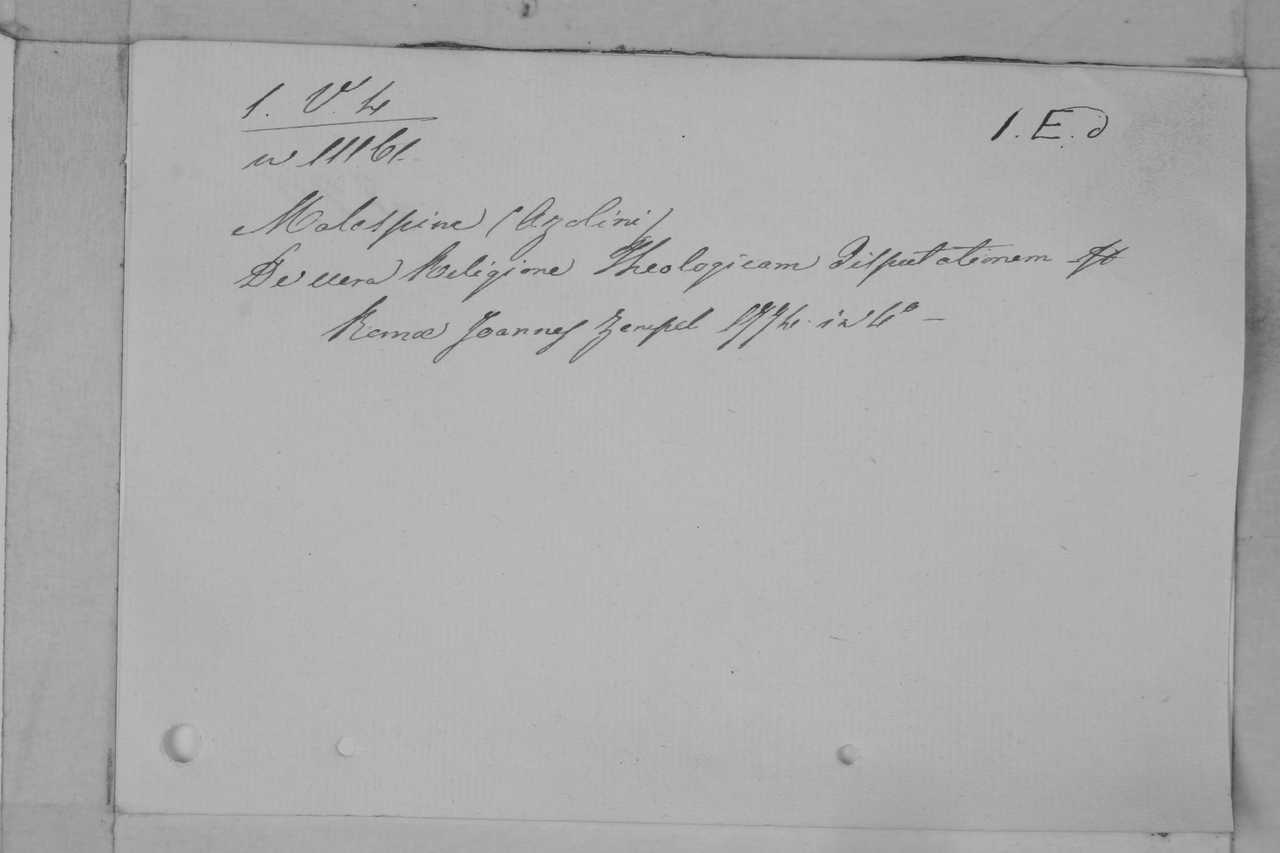 1. V. 4
1. E. d
Malaspine (Azolini)
De uera Religione Theologicam Disputationem
Romæ Joannes Zempel 1774. in 4º –